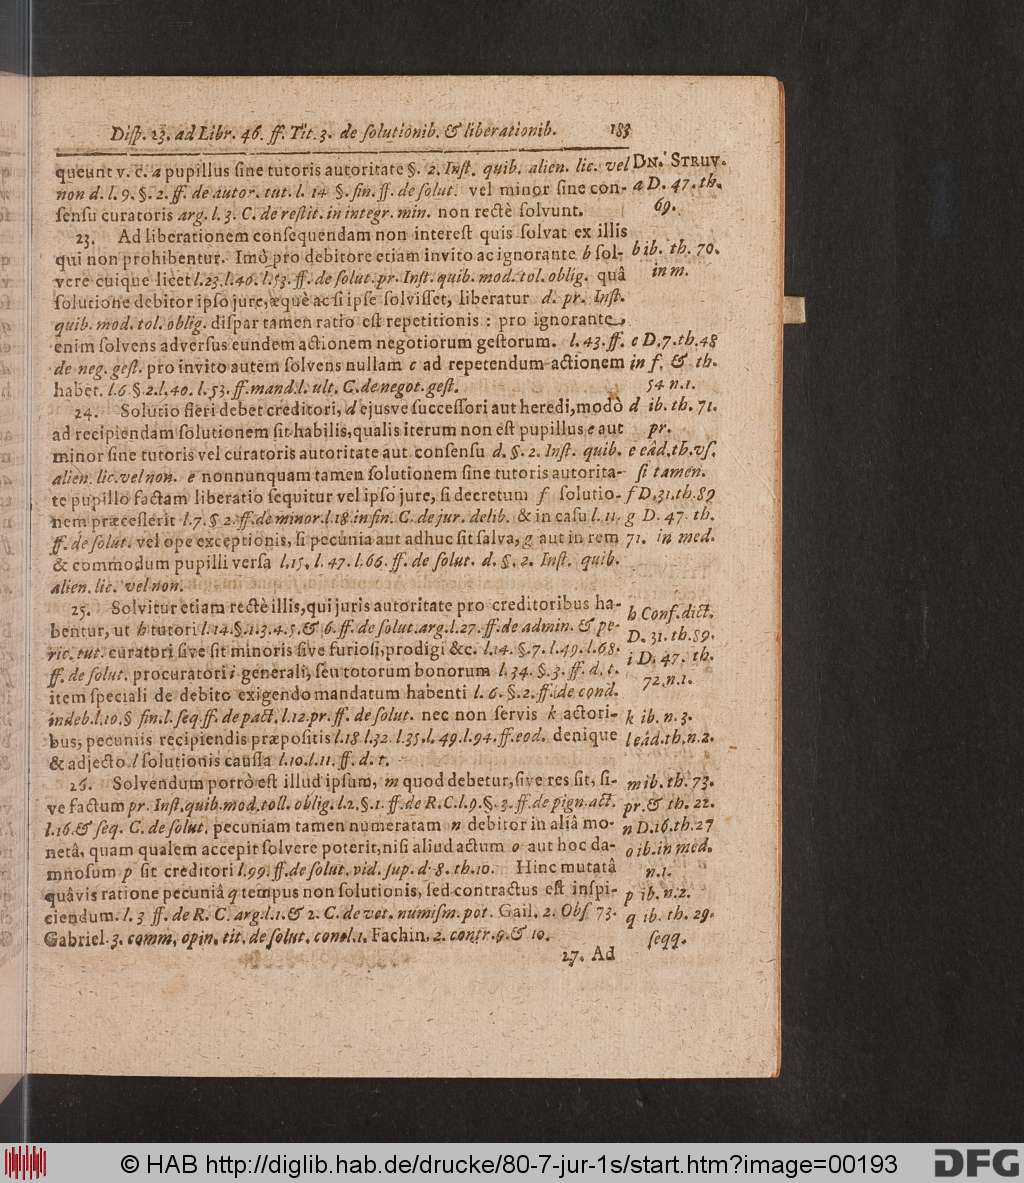 Disp. 23. ad Libr. 46. ff. Tit. 3. de solutionib. & liberationib. 183
queunt v. c. a pupillus sine tutoris autoritate §. 2. Inst. quib. alien. lic. vel
non d. l. 9. §. 2. ff. de autor. tut. l. 14 §. fin. ff. de solut. vel minor sine con-
sensu curatoris arg. l. 3. C. de restit. in integr. min. non rectè solvunt.
23. Ad liberationem consequendam non interest quis solvat ex illis
qui non prohibentur. Imò pro debitore etiam invito ac ignorante b sol-
vere cuique licet l.23.l.40. l.53. ff. de solut. pr. Inst. quib. mod. tol. oblig. quâ
solutione debitor ipso jure, æquè ac si ipse solvisset, liberatur d. pr. Inst.
quib. mod. tol. oblig. dispar tamen ratio est repetitionis : pro ignorante,
enim solvens adversus eundem actionem negotiorum gestorum. l. 43. ff.
de neg. gest. pro invito autem solvens nullam c ad repetendum actionem
habet. l.6 §.2.l.40. l.53. ff. mand. l. ult. C. de negot. gest.
24. Solutio fieri debet creditori, d ejusve successori aut heredi, modò
ad recipiendam solutionem sit habilis, qualis iterum non est pupillus e aut
minor sine tutoris vel curatoris autoritate aut consensu d. §. 2. Inst. quib.
alien. lic. vel non. e nonnunquam tamen solutionem sine tutoris autorita-
te pupillo factam liberatio sequitur vel ipso jure, si decretum f solutio-
nem præcesserit l.7. § 2. ff. de minor. l.18. in fin. C. de jur. delib. & in casu l. 11.
ff. de solut. vel ope exceptionis, si pecunia aut adhuc sit salva, g aut in rem
& commodum pupilli versa l.15. l. 47. l.66. ff. de solut. d. §. 2. Inst. quib.
alien. lic. vel non.
25. Solvitur etiam rectè illis, qui juris autoritate pro creditoribus ha-
bentur, ut h tutori l.14.§.1.3.4.5.& 6. ff. de solut. arg. l.27. ff. de admin. & pe-
ric. tut. curatori sive sit minoris sive furiosi, prodigi &c. l.14. §.7. l.49. l.68.
ff. de solut. procuratori i generali, seu totorum bonorum l. 34. §. 3. ff. d. t.
item speciali de debito exigendo mandatum habenti l. 6. §.2. ff. de cond.
indeb. l.10.§ fin. l. seq. ff. de pact. l.12. pr. ff. de solut. nec non servis k actori-
bus, pecuniis recipiendis præpositis l.18 l.32. l.35. l. 49. l.94. ff. eod. denique
& adjecto l solutionis caussa l.10.l.11. ff. d. t.
26. Solvendum porrò est illud ipsum, m quod debetur, sive res sit, si-
ve factum pr. Inst. quib. mod. toll. oblig. l.2.§.1. ff. de R. C. l.9.§.3. ff. de pign. act.
l.16.& seq. C. de solut. pecuniam tamen numeratam n debitor in aliâ mo-
netâ, quam qualem accepit solvere poterit, nisi aliud actum o aut hoc da-
mnosum p sit creditori l.99. ff. de solut. vid. sup. d. 8. th.10. Hinc mutatâ
quâvis ratione pecuniâ q tempus non solutionis, sed contractus est inspi-
ciendum. l. 3 ff. de R. C. arg. l.1.& 2. C. de vet. numism. pot. Gail. 2. Obs 73.
Gabriel. 3. comm. opin. tit. de solut. concl. 1. Fachin. 2. contr. 9. & 10.
27. Ad
DN. STRUV.
a D. 47. th.
69.
b ib. th. 70.
in m.
c D. 7. th. 48
in f. & th.
54 n.1.
d ib. th. 71.
pr.
e eâd. th. vs.
si tamen.
f D. 31. th. 89
g D. 47. th.
71. in med.
h Conf. dict.
D. 31. th. 89.
i D. 47. th.
72. n.1.
k ib. n. 3.
l eâd. th. n. 2.
m ib. th. 73.
pr. & th. 22.
n D. 16. th. 27
o ib. in med.
n.1.
p ib. n. 2.
q ib. th. 29.
seqq.
© HAB http://diglib.hab.de/drucke/80-7-jur-1s/start.htm?image=00193
DFG